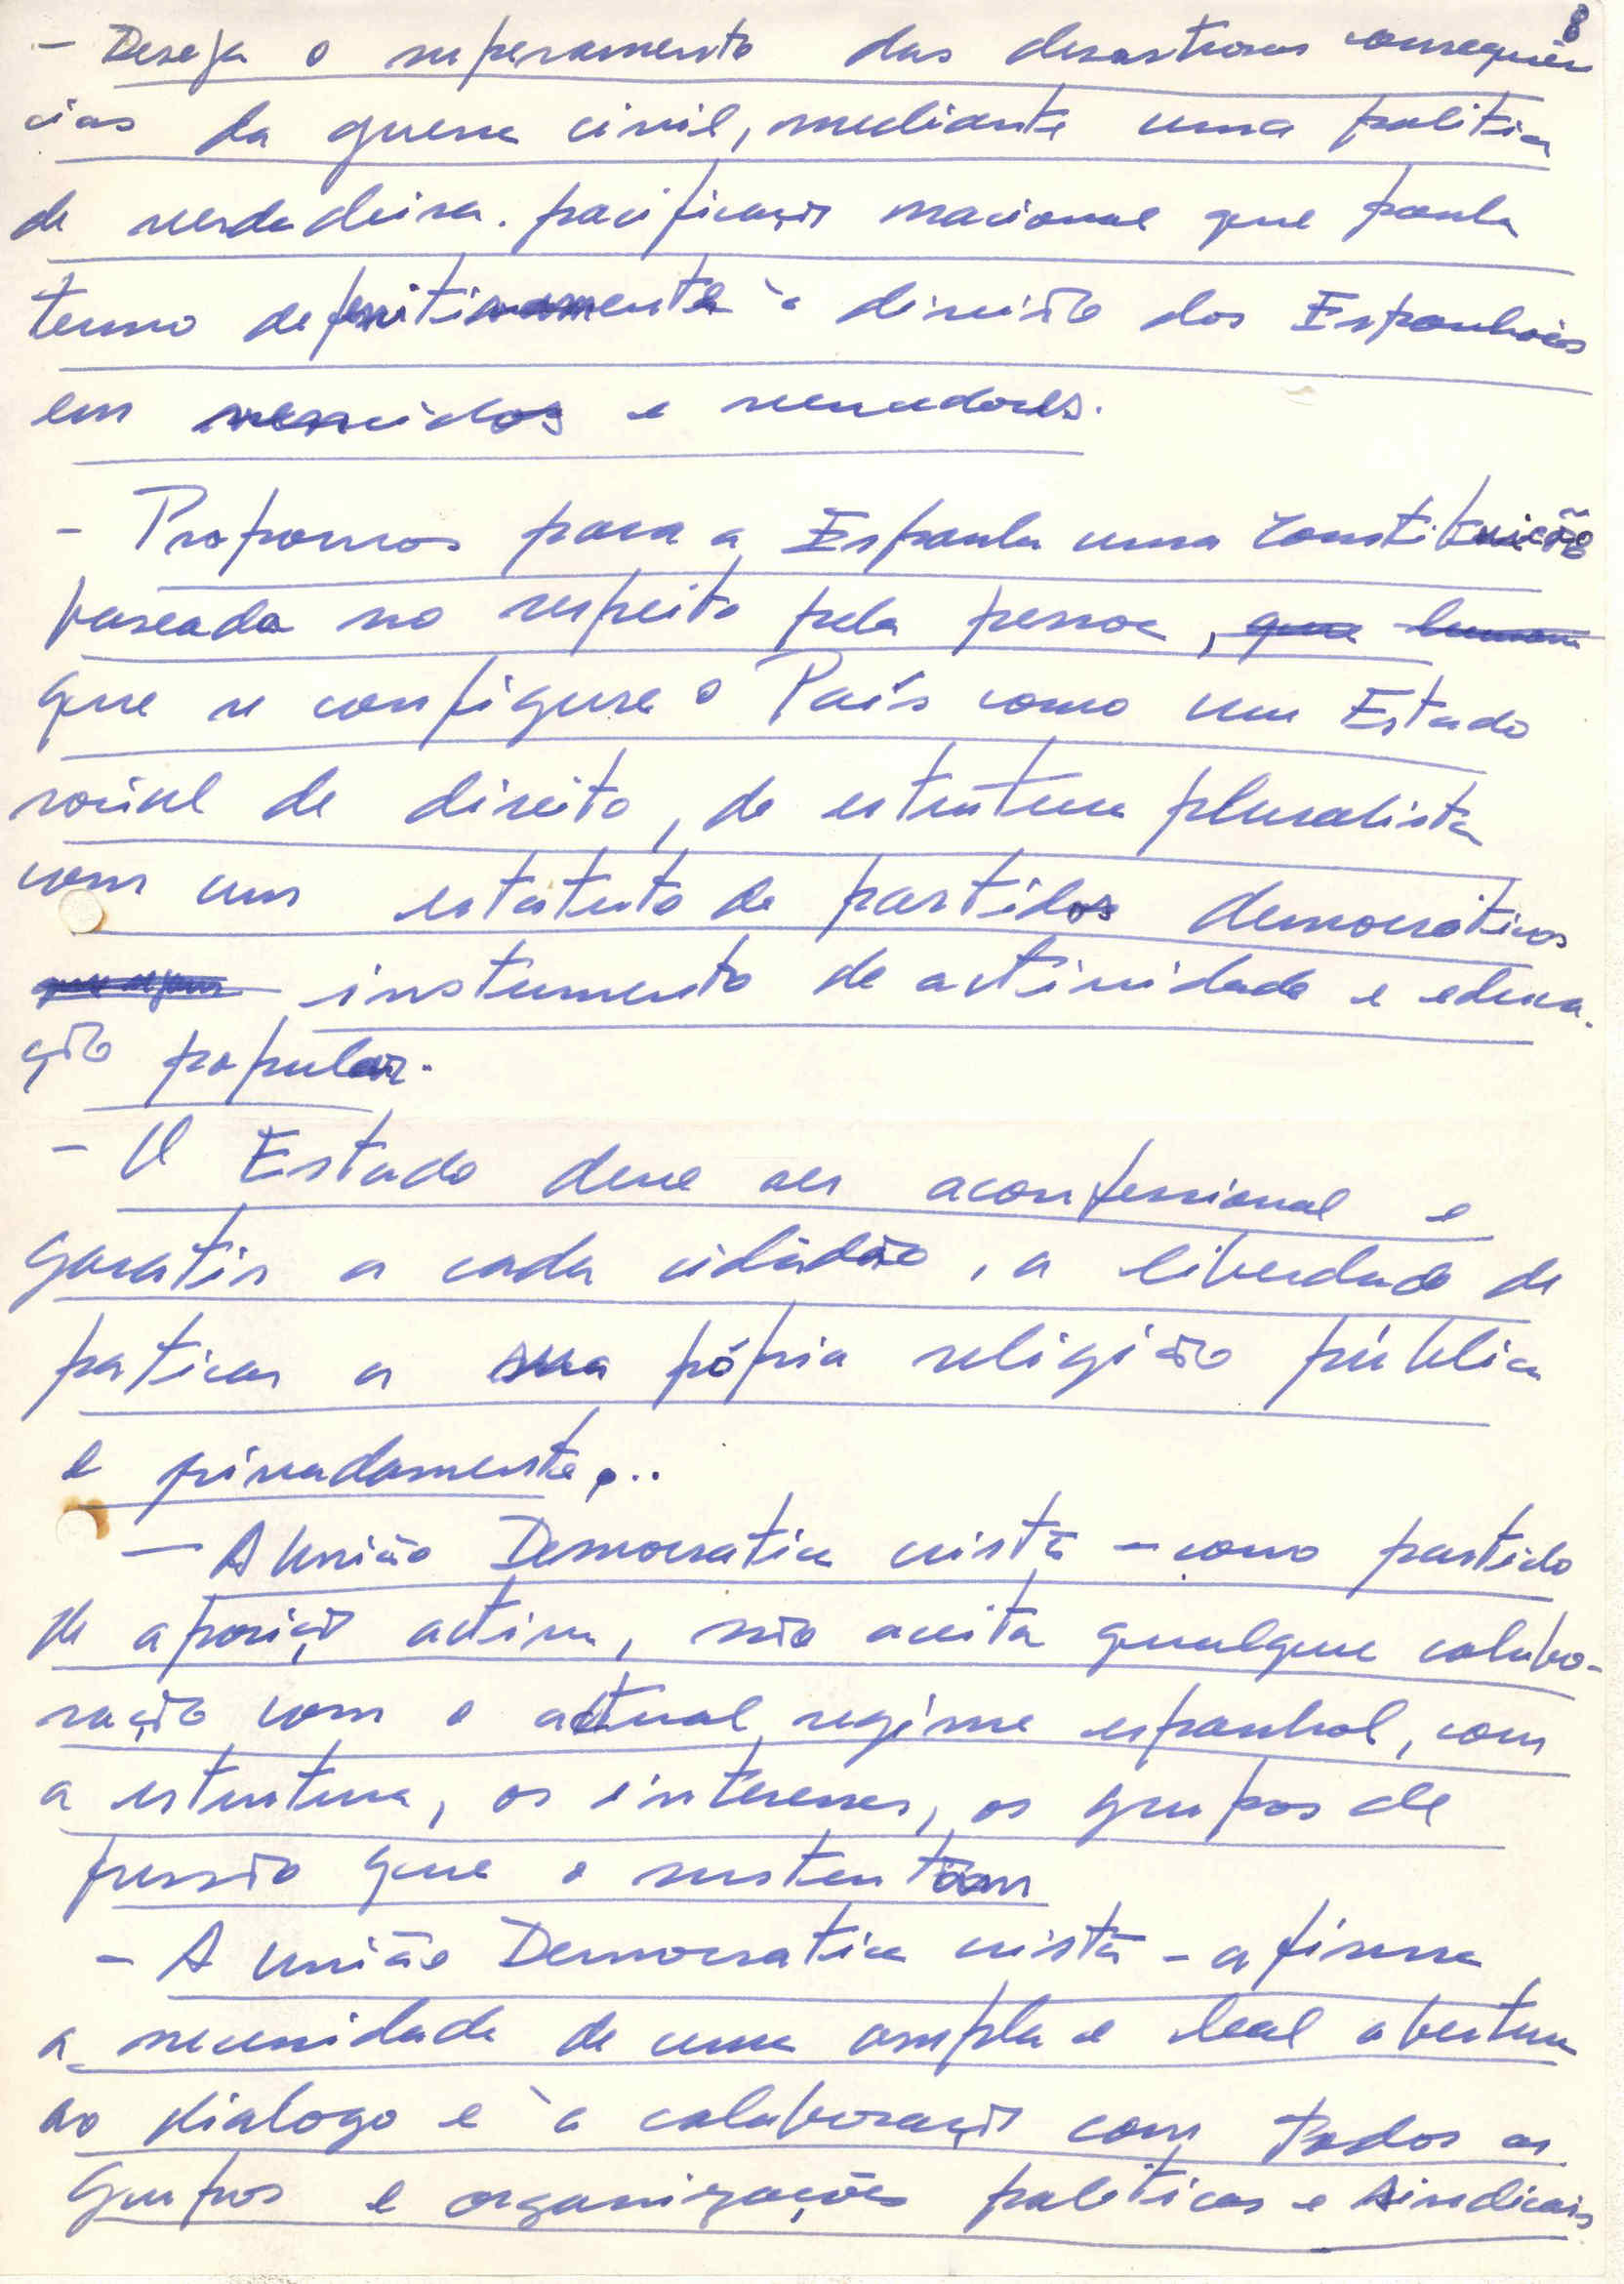 8
- Deseja o superamento das desastrosas consequên
cias da guerra civil, mediante uma politica
de verdadeira pacificação nacional que ponha
termo definitivamente à divisão dos Espanhois
em vencidos e vencedores.
- Propomos para a Espanha uma Constituição
baseada no respeito pela pessoa, que humana
que se configure o País como um Estado
social de direito, de estrutura pluralista
com um estatuto de partidos democráticos
que sejam instrumento de actividade e educa-
ção popular.
- O Estado deve ser aconfessional e
garatir a cada cidadão, a liberdade de
praticar a sua própria religião pública
e privadamente...
- A União Democratica cristã - como partido
de oposição activa, não aceita qualquer colabo-
ração com o actual regime espanhol, com
a estrutura, os interesses, os grupos de
pressão que o sustentam
- A União Democratica cristã - afirma
a necessidade de uma ampla e leal abertura
ao dialogo e à colaboração com todos os
Grupos e organizações politicas e sindicais